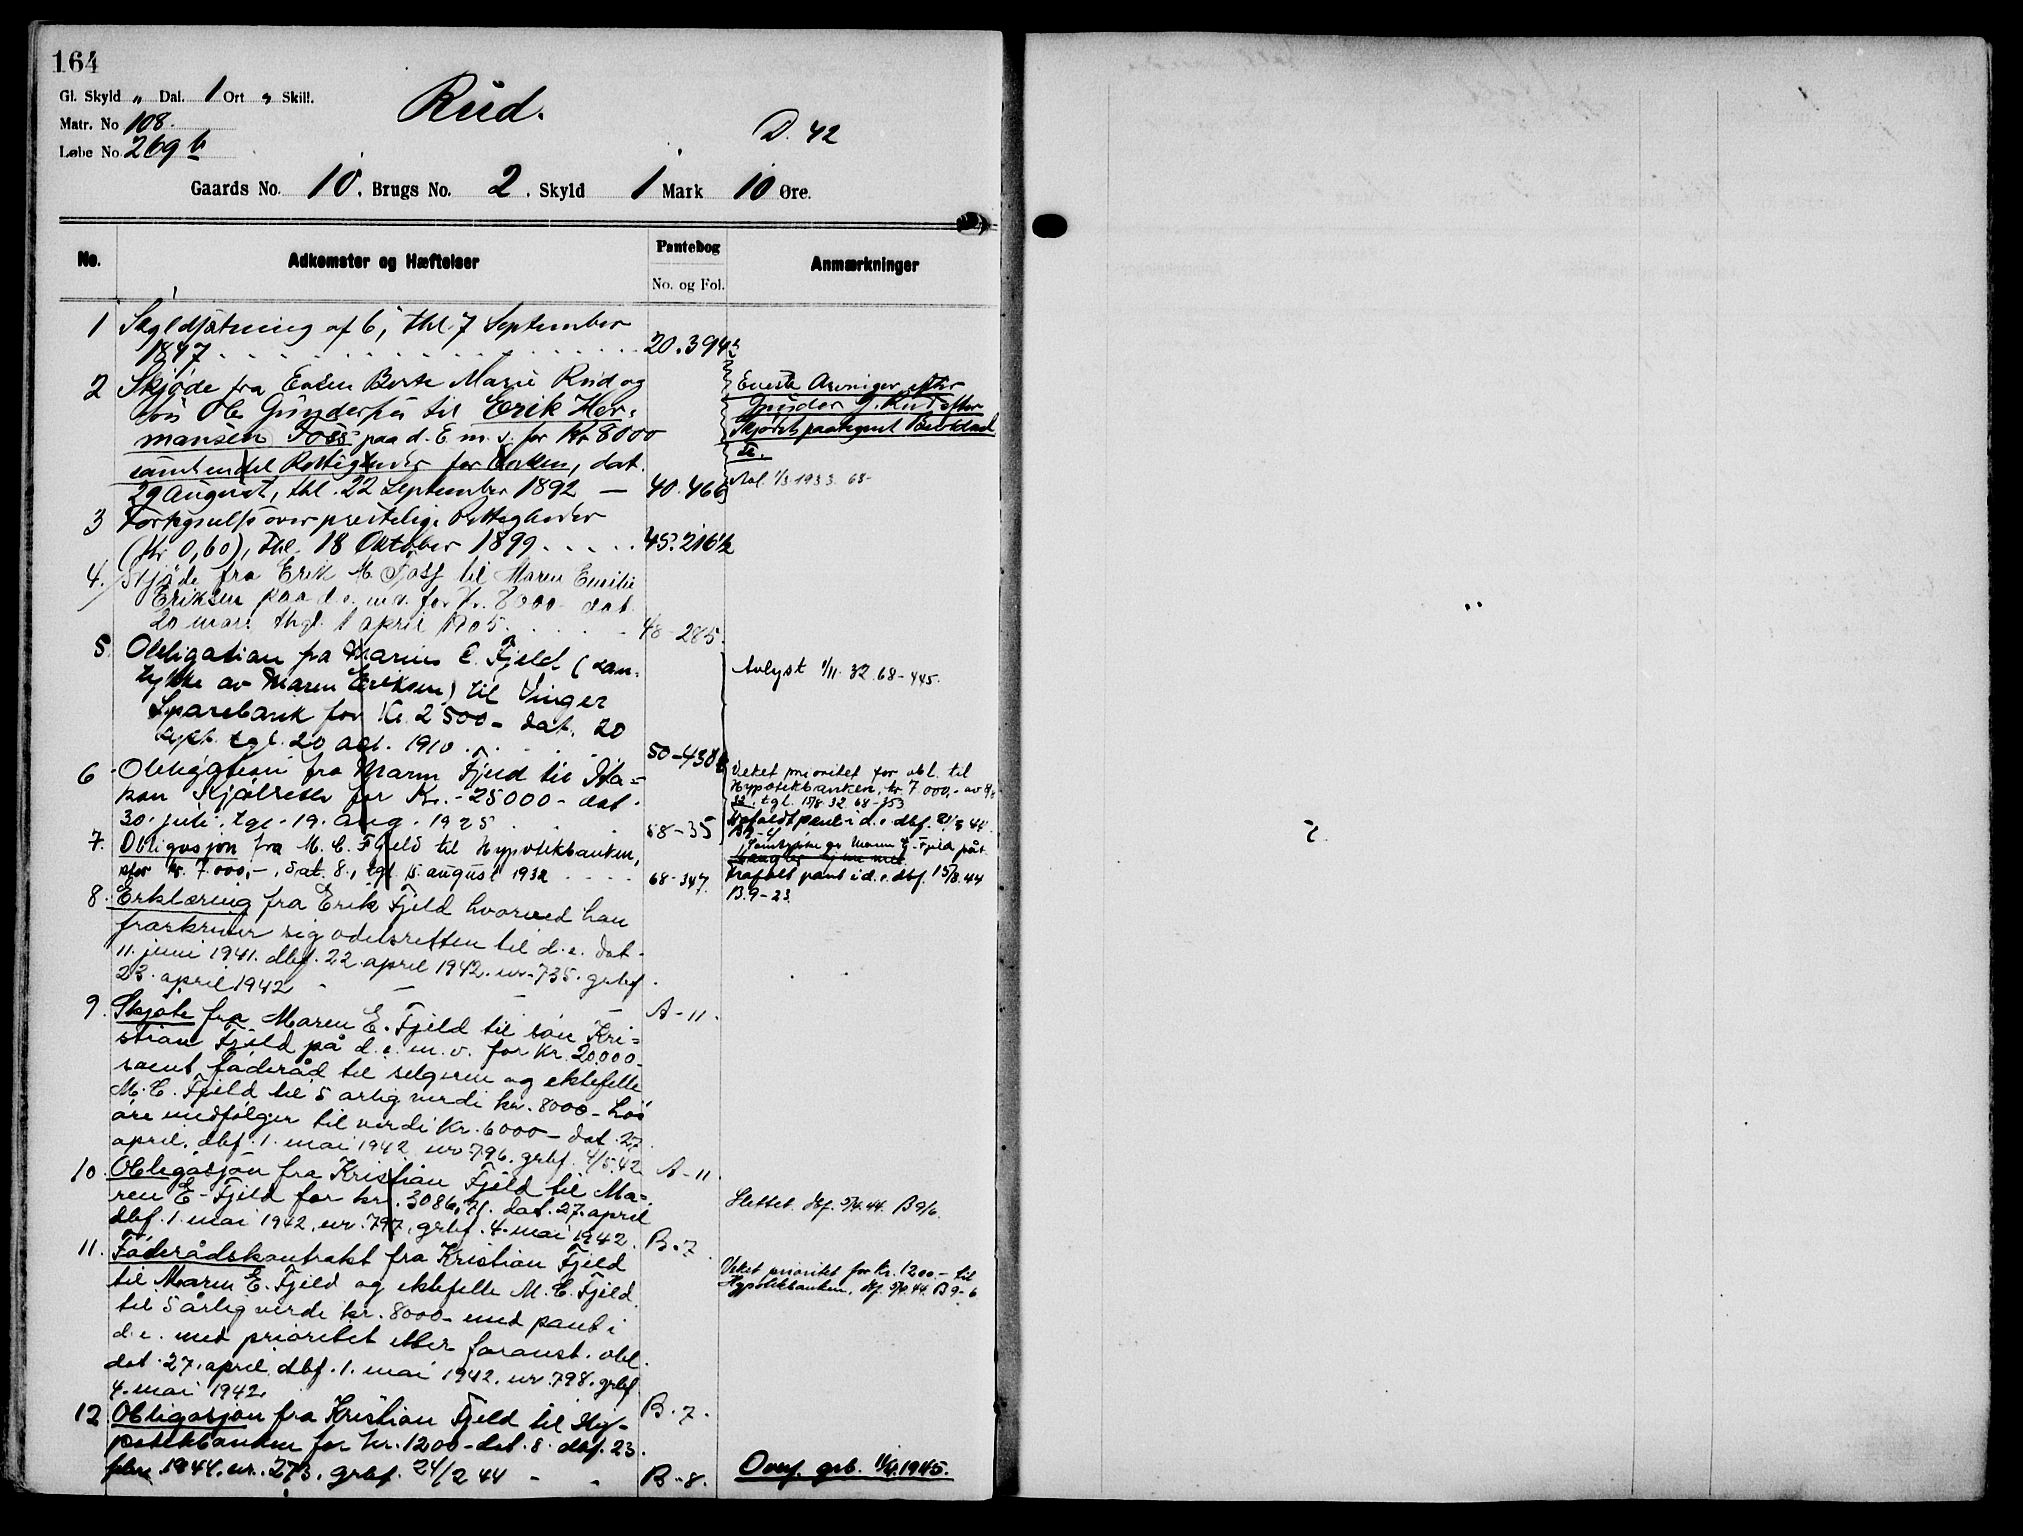 164
Gl. Skyld " Dal. 1 Ort " Skill.
Matr. No 108.
Løbe No. 269 b
Rud.
D. 42
Gaards No. 10. Brugs No. 2. Skyld 1 Mark 10 Øre.
No. Adkomster og Hæftelser Pantebog No. og Fol. Anmærkninger
1 Skyldsætning af 6, thl. 7 September
1847 20.394
2 Skjøde fra Enken Berte Marie Rud og
Ole til Erik Her-
mansen Foss paa d. E. m. v. for Kr 8000
samt endel Rettigheder for Enken, dat.
29 August, thl. 22 September 1892 — 40.466
Eneste Arvinger efter
Skjødets paategnet
Avl. 1/3 1933. 68-
3 over Rettigheder
(Kr 0,60), thl. 18 Oktober 1899 45. 216
4. Skjøde fra Erik H. Foss til Maren Emilie
Eriksen paa d. e. m. v. for Kr. 8000 - dat.
20 mars thgl. 1 april 1905. 48-285.
5. Obligation fra Marius C. Fjeld (sam-
tykke av Maren Eriksen) til Vinger
Sparebank for Kr. 2500 - dat. 20
sept. tgl. 20 1910. 50-438
Avlyst 1/11. 32. 68-445.
6 Obligation fra Maren Fjeld til Ha=
kon for Kr. - 25000 - dat.
30. juli, tgl. 19. aug. 1925 58-35
Veket prioritet for obl. til
Hypotekbanken, kr. 7000,- av
32, tgl. 15/8 32. 68-353
Frafaldt pant i d. e. dbf. 44.
B9-4
7. Obligasjon fra M. C. Fjeld til Hypotekbanken,
stor kr. 7.000,-, dat. 8., tgl. 15. august 1932 68-347.
Samtykke av Maren E. Fjeld påt.
Frafalt pant i d. e. dbf. 15/8.44
B. 9-23.
8. Erklæring fra Erik Fjeld hvorved han
fraskriver sig odelsretten til d. e. dat.
11. juni 1941. dbf. 22. april 1942. nr. 735. grbf.
23. april 1942 - - - A-11.
9. Skjøte fra Maren E. Fjeld til sön Kri=
stian Fjeld på d. e. m. v. for kr. 20.000-
samt föderåd til selgeren og ektefelle
M. C. Fjeld til 5 årlig verdi kr. 8000 - Lös
öre medfölger til verdi Kr. 6000 - dat. 27.
april, dbf. 1. mai 1942 nr 796. grbf. 4/5.42 A-11
10. Obligasjon fra Kristian Fjeld til Ma=
ren E. Fjeld for kr. 3086,71. dat. 27. april
dbf. 1. mai 1942, nr. 797, grbf. 4. mai 1942. B. 7.
Slettet. dbf. 44. B 9/6.
11. Föderådskontrakt fra Kristian Fjeld
til Maren E. Fjeld og ektefelle M. C. Fjeld.
til 5 årlig verdi kr. 8000 - med pant i
d. e. med prioritet etter foranst. obl.
dat. 27. april, dbf. 1. mai 1942. nr. 798. grbf
4. mai 1942. B. 7.
Veket prioritet for Kr. 1200.- til
Hypotekbanken, dbf. 44. B 9-6
12 Obligasjon fra Kristian Fjeld til Hy-
potekbanken for kr. 1200 - dat. 8. dbf. 23.
febr. 1944. nr. 273. grbf. 24/2 44 - - B-8.
Overf. grb. 11/4.1945.